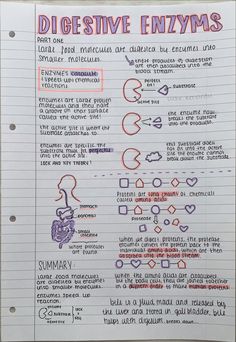 DIGESTIVE ENZYMS
PART ONE
Large food molecules are digested by enzymes into
smaller molecules.
these products of digestion
are then absorbed into the
blood stream.
ENZYMES
speed up chemical
reactions
perfect
fit!
substrate
enzymes are large protein
molecules and they have
a groove on their surface
called the active site!
the active site is where the
substrate attaches to.
the enzyme now
break the substrate
into the products.
enzymes are specific the
substrate must fit perfectly
into the active site
LOCK AND KEY THEORY!
this substrate does
not fit into the active
site the enzyme cannot
break down the substrate
Proteins are long chains of chemicals
called amino acids
stomach
pancreas
small
intestine
where proteins
are found.
protease
When we digest proteins, the protease
enzymes convert the protein back to the
individual amino acids which are then
absorbed into the blood stream.
SUMMARY
Large food molecules
are digested by enzymes
into smaller molecules.
Enzymes speed up
reaction.
When the amino acids are absorbed
by the body cells, they are joined together
in a different order to make human proteins
enzyme
lock +
key
Bile is a fluid made and released by
the liver and stored in gall bladder. Bile
helps with digestion.